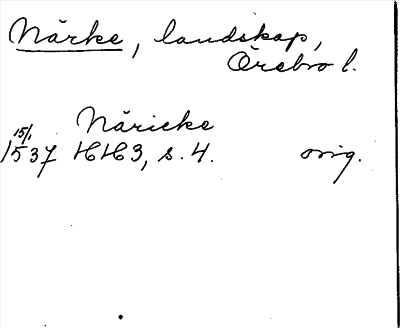 Närke, landskap,
Örebro l.
Näricke
15/1
1537 HH3, s. 4. orig.